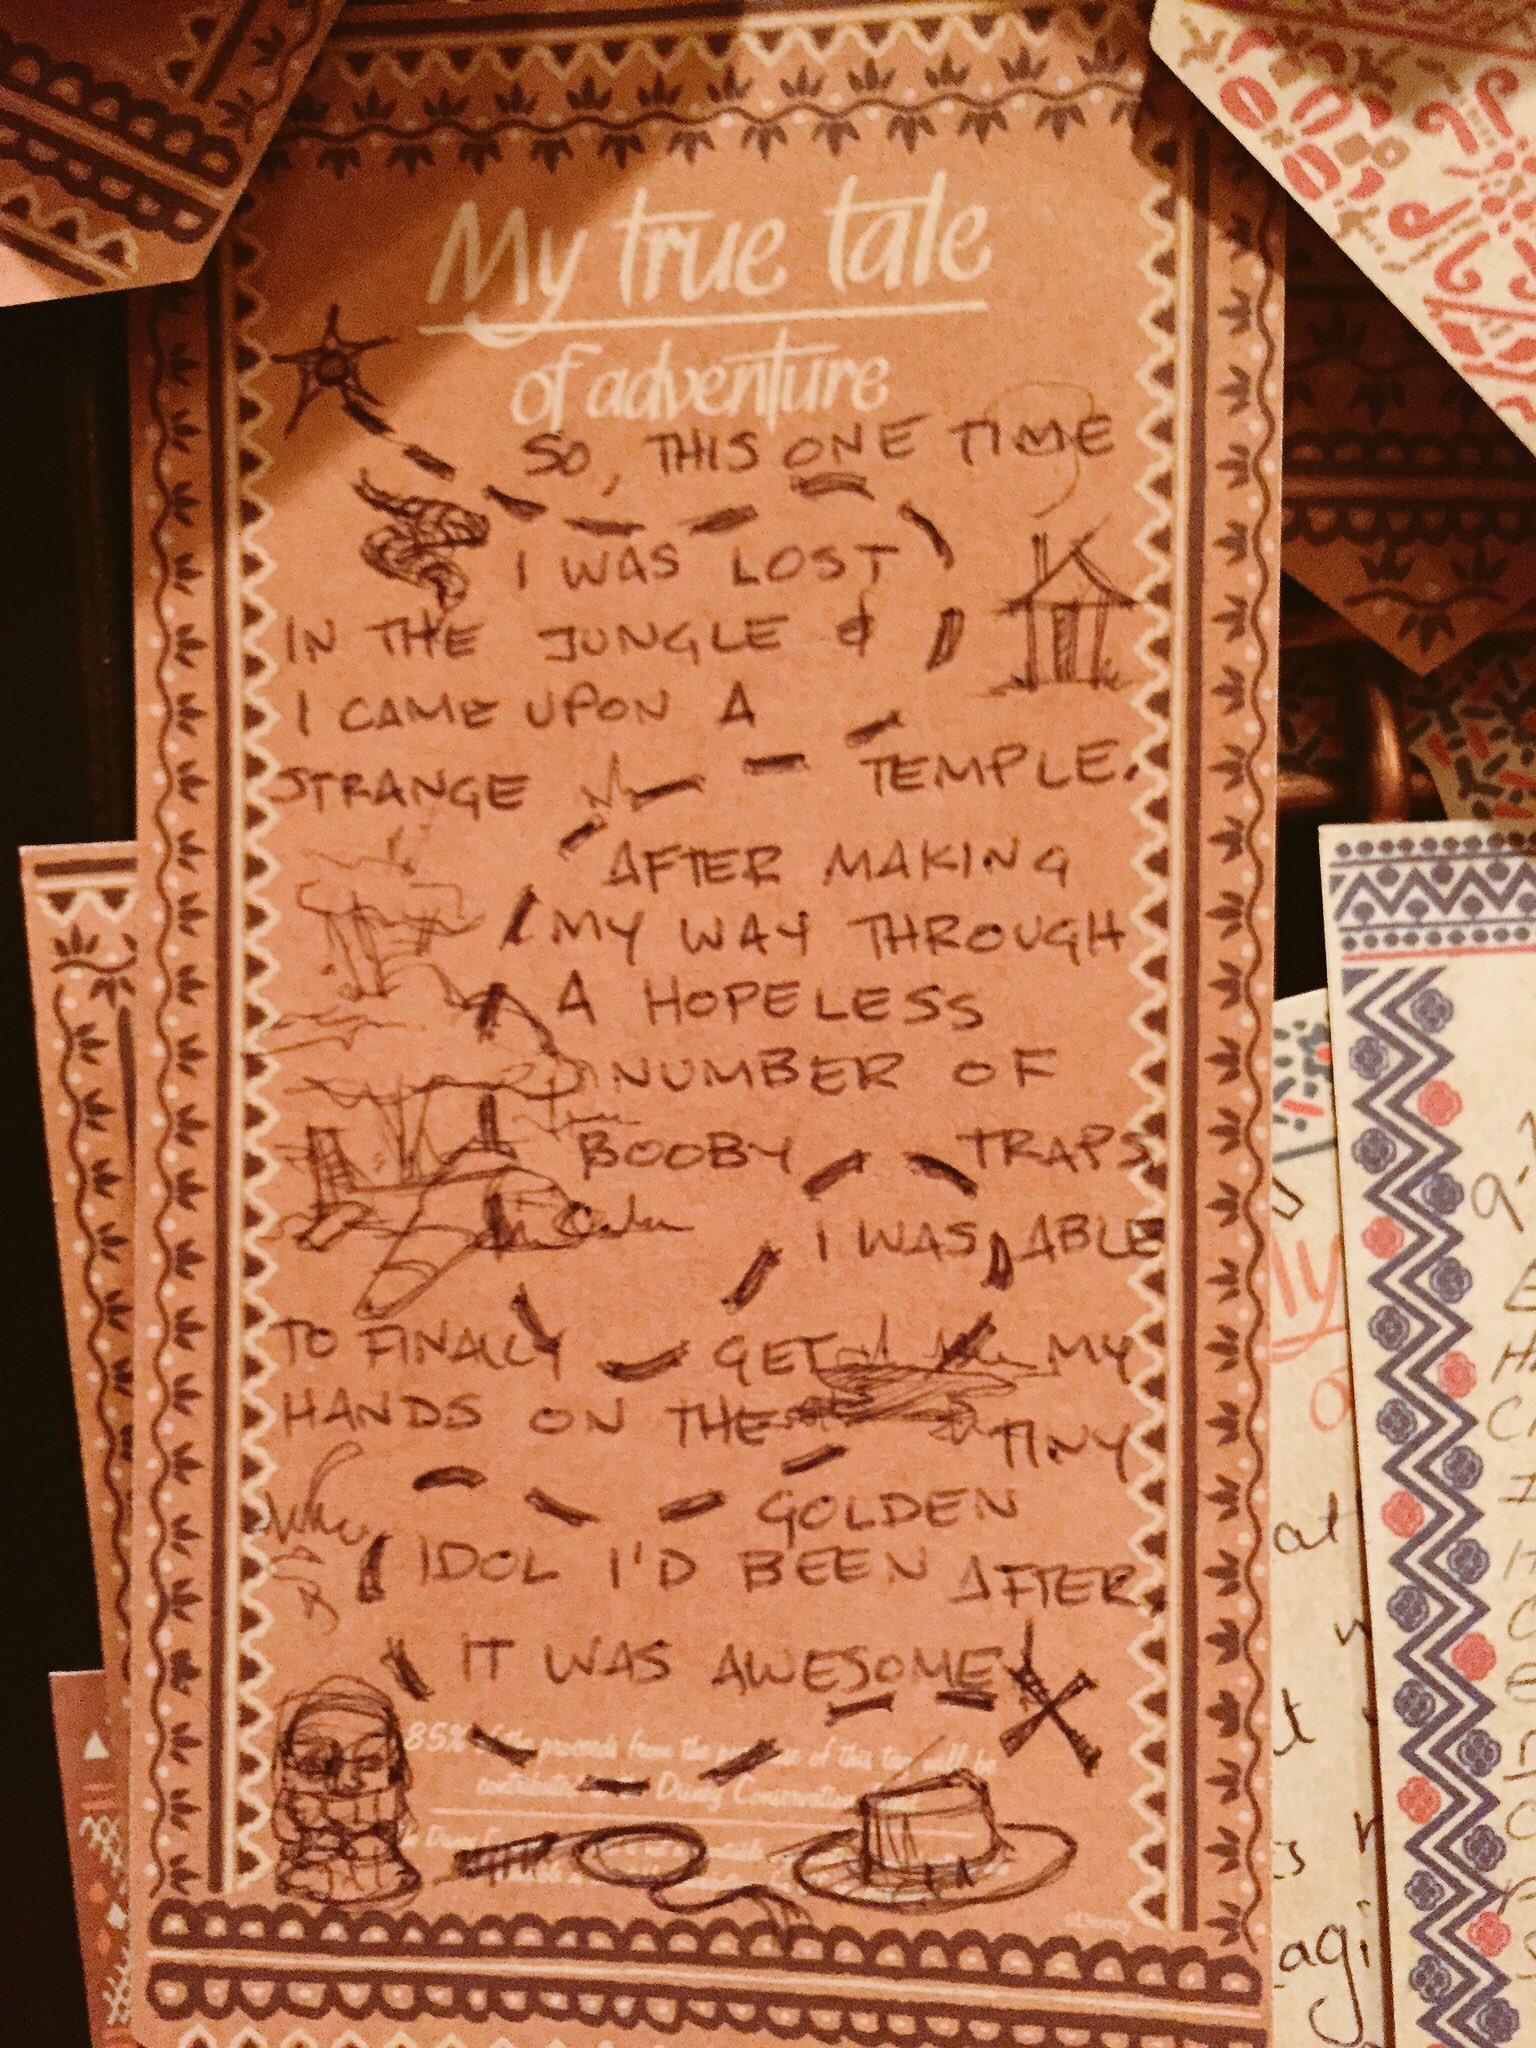 My true tale
of adventure
SO, THIS ONE TIME
I WAS LOST
IN THE JUNGLE &
I CAME UPON A
STRANGE TEMPLE.
AFTER MAKING
MY WAY THROUGH
A HOPELESS
NUMBER OF
BOOBY TRAPS
I WAS ABLE
TO FINALLY GET MY
HANDS ON THE TINY
GOLDEN
IDOL I'D BEEN AFTER
IT WAS AWESOME
85% of the proceeds from the purchase of this tag will be
contributed to the Disney Conservation
©Disney
at
t
agi